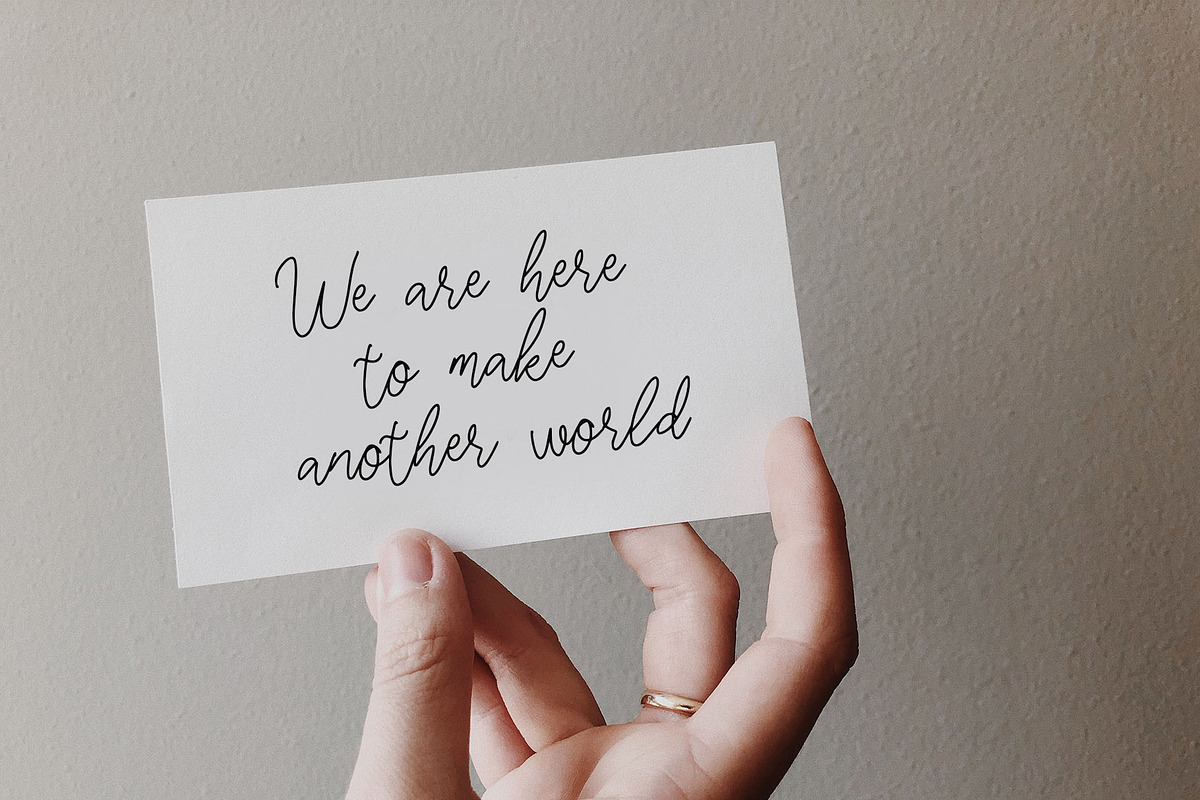 We are here
to make
another world